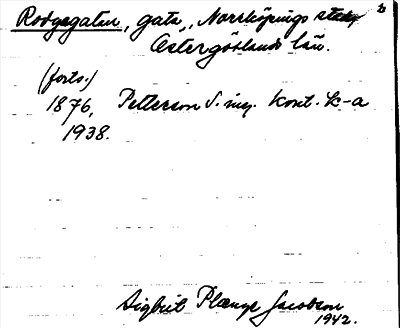 Rodgagatan, gata, Norrköpings stad,
Östergötlands län.
(forts.)
1876, Petterson S. ing. kont. k-a
1938.
Sigbrit Plænge Jacobson
1942.